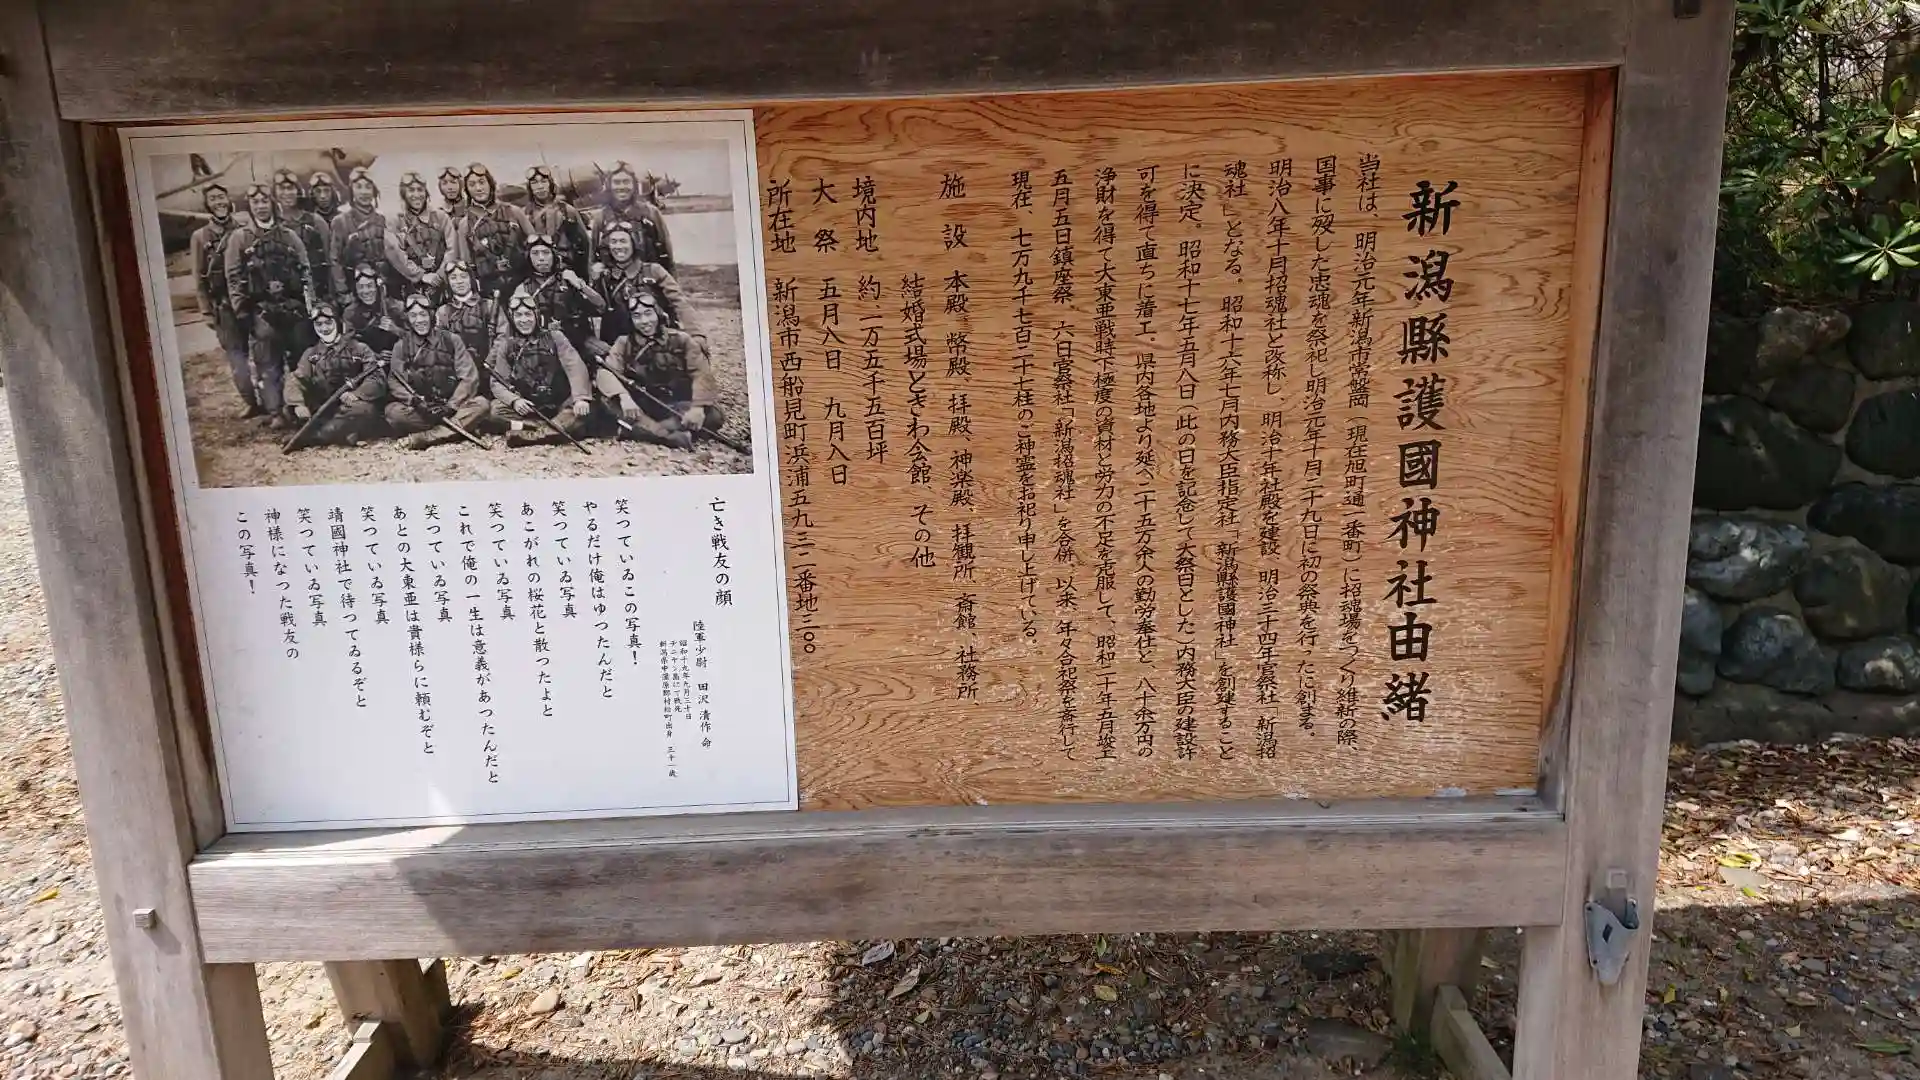 新潟縣護國神社由緒
当社は、明治元年新潟市常盤岡（現在旭町通一番町）に招魂場をつくり維新の際、
国事に歿した忠魂を祭祀し明治元年十月二十九日に初の祭典を行ったに創まる。
明治八年十月招魂社と改称し、明治十年社殿を建設、明治三十四年官祭社「新潟招
魂社」となる。昭和十六年七月内務大臣指定社「新潟縣護國神社」を創建すること
に決定。昭和十七年五月八日（此の日を記念して大祭日とした）内務大臣の建設許
可を得て直ちに着工。県内各地より延べ二十五万余人の勤労奉仕と、八十余万円の
浄財を得て大東亜戦時下極度の資材と労力の不足を克服して、昭和二十年五月竣工
五月五日鎮座祭、六日官祭社「新潟招魂社」を合併、以来、年々合祀祭を斎行して
現在、七万九千七百二十七柱のご神霊をお祀り申し上げている。
施設 本殿、幣殿、拝殿、神楽殿、拝観所、斎館、社務所、
結婚式場ときわ会館、その他
境内地 約一万五千五百坪
大祭 五月八日 九月八日
所在地 新潟市西船見町浜浦五九三二番地三〇〇
亡き戦友の顔
陸軍少尉 田沢 清作 命
昭和十九年九月三十日
テニヤン島にて戦死
新潟県中蒲原郡村松町出身 三十一歳
笑っているこの写真！
やるだけ俺はやったんだと
笑っている写真
あこがれの桜花と散ったよと
笑っている写真
これで俺の一生は意義があったんだと
笑っている写真
あとの大東亜は貴様らに頼むぞと
笑っている写真
靖國神社で待ってゐるぞと
笑っている写真
神様になった戦友の
この写真！